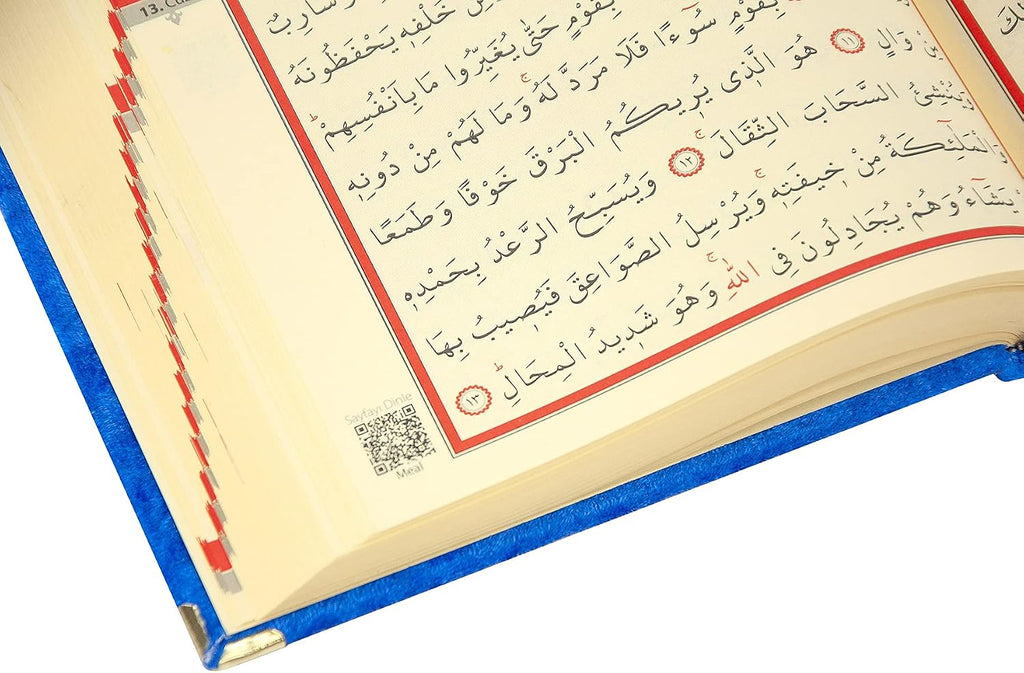 13.
وَسَارِبٌ
خَلْفِه۪ يَحْفَظُونَهُ
بِقَوْمٍ حَتّٰى يُغَيِّرُوا مَا بِاَنْفُسِهِمْۜ
بِقَوْمٍ سُٓوءًا فَلَا مَرَدَّ لَهُۚ وَمَا لَهُمْ مِنْ دُونِه۪
مِنْ وَالٍ ﴿١١﴾ هُوَ الَّذ۪ي يُر۪يكُمُ الْبَرْقَ خَوْفًا وَطَمَعًا
وَيُنْشِئُ السَّحَابَ الثِّقَالَۚ ﴿١٢﴾ وَيُسَبِّحُ الرَّعْدُ بِحَمْدِه۪
وَالْمَلٰٓئِكَةُ مِنْ خ۪يفَتِه۪ۚ وَيُرْسِلُ الصَّوَاعِقَ فَيُص۪يبُ بِهَا
يَشَٓاءُ وَهُمْ يُجَادِلُونَ فِي اللّٰهِۚ وَهُوَ شَد۪يدُ الْمِحَالِۜ ﴿١٣﴾
Sayfayı Dinle
Meal